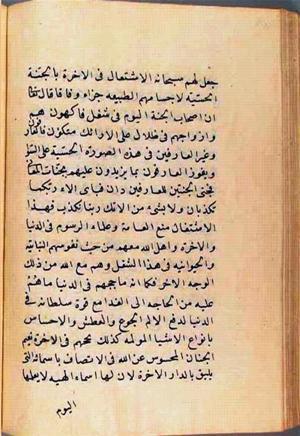 جعل لهم سبحانه الاشتغال في الاخرة بالجنة
الحسية لاجسامهم الطبيعه جزاء وفاقا قال تعالى
ان اصحاب الجنة اليوم في شغل فاكهون هم
وازواجهم في ظلال على الارائك متكؤن فالعارفون
وغير العارفين في هذه الصورة الحسية على السواء
ويفوز العارفون بما يزيدون عليهم بجنات
فجنى الجنتين للعارفين دان فباى الاء ربكما
تكذبان ولا بشئ من الائك ربنا نكذب فهذا
الاشتغال منع العامة وعلماء الرسوم في الدنيا
والاخرة واهل الله معهد من حيث نفوسهم النباتيه
والحيوانيه في هذا الشغل وهم مع الله من ذلك
الوجه الاخر فكما انه ما حجبهم في الدنيا ما هم
عليه من الحاجه الى الغذا مع قوة سلطانه في
الدنيا لدفع الالم الجوع والعطش والاحساس
بانواع الاشيا المولمه كذلك ما يحجبهم في الاخرة نعيم
الجنان المحسوس عن الله في الاتصاف باسمائه التي
يليق بالدار الاخرة لان لها اسماء الهيه لا يعلمها
اليوم